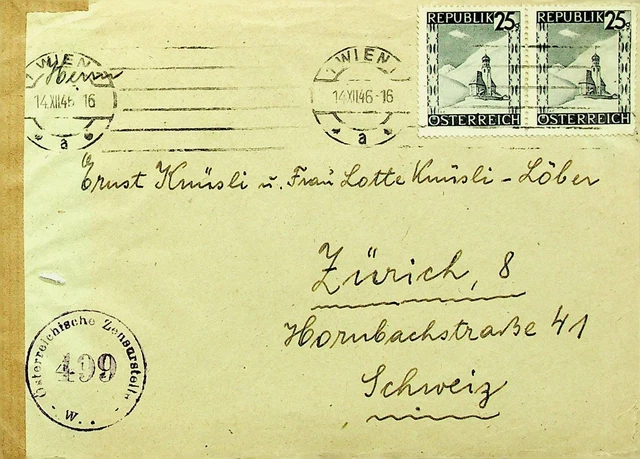 REPUBLIK 25g REPUBLIK 25g
ÖSTERREICH ÖSTERREICH
WIEN WIEN
14.XII.46-16 14.XII.46-16
a a
Herrn
Ernst Knüsli u. Frau Lotte Knüsli-Löber
Zürich, 8
Hornbachstraße 41
Schweiz
Österreichische Zensurstelle
499
W.